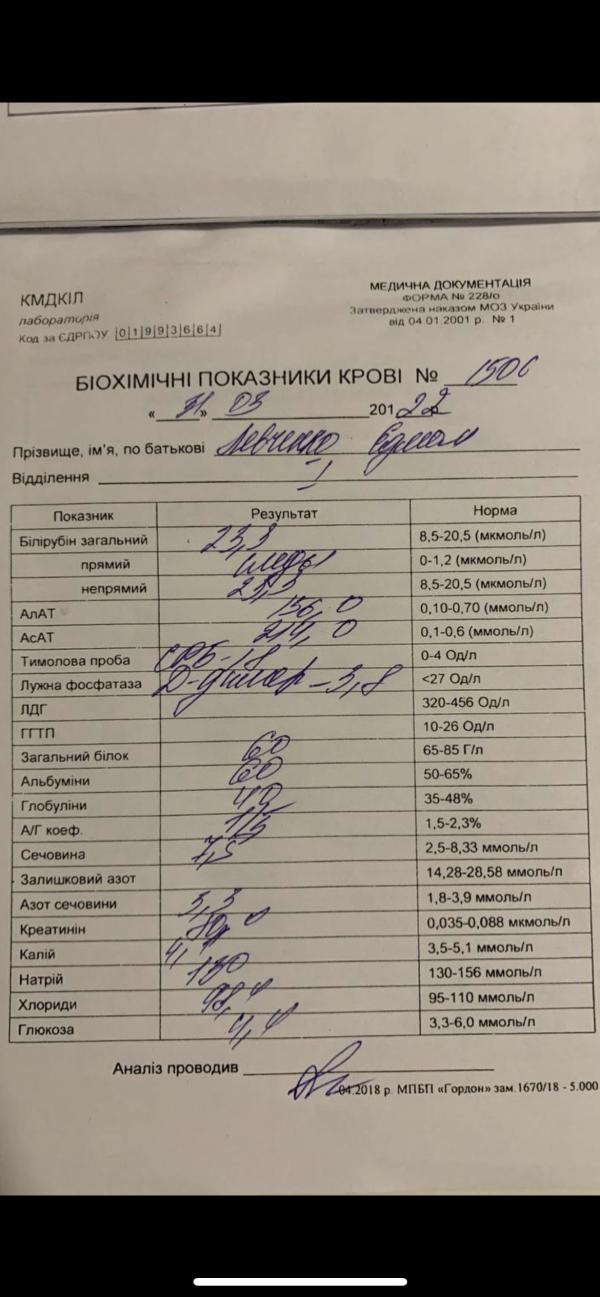 КМДКІЛ
МЕДИЧНА ДОКУМЕНТАЦІЯ
лабораторія
ФОРМА № 228/о
Код за ЄДРПОУ 01993664
Затверджена наказом МОЗ України
від 04 01.2001 р. № 1
БІОХІМІЧНІ ПОКАЗНИКИ КРОВІ № 1506
«31» 03 201 22
Прізвище, ім'я, по батькові Левченко
Відділення I
Показник Результат Норма
Білірубін загальний 23,3 8,5-20,5 (мкмоль/л)
прямий следы 0-1,2 (мкмоль/л)
непрямий 23,3 8,5-20,5 (мкмоль/л)
АлАТ 156,0 0,10-0,70 (ммоль/л)
АсАТ 214,0 0,1-0,6 (ммоль/л)
Тимолова проба СРБ - 18 0-4 Од/л
Лужна фосфатаза Д-димер - 3,8 <27 Од/л
ЛДГ 320-456 Од/л
ГГТП 10-26 Од/л
Загальний білок 60 65-85 Г/л
Альбуміни 60 50-65%
Глобуліни 40 35-48%
А/Г коеф. 1,5 1,5-2,3%
Сечовина 7,5 2,5-8,33 ммоль/л
Залишковий азот 14,28-28,58 ммоль/л
Азот сечовини 3,3 1,8-3,9 ммоль/л
Креатинін 0,035-0,088 мкмоль/л
Калій 3,5-5,1 ммоль/л
Натрій 130 130-156 ммоль/л
Хлориди 98,4 95-110 ммоль/л
Глюкоза 4,4 3,3-6,0 ммоль/л
Аналіз проводив
04.2018 р. МПБП «Гордон» зам.1670/18 - 5.000